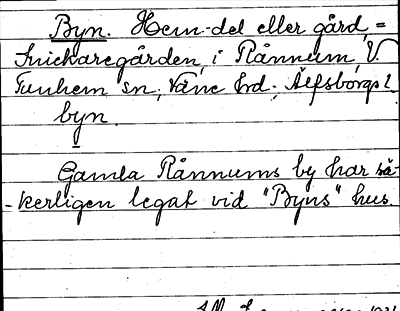 Byn. Hem-del eller gård, =
Snickaregården, i Rånnum, V.
Tunhem sn, Väne hrd., Älfsborgs l.
byn.
Gamla Rånnums by har sä-
-kerligen legat vid "Byns" hus.